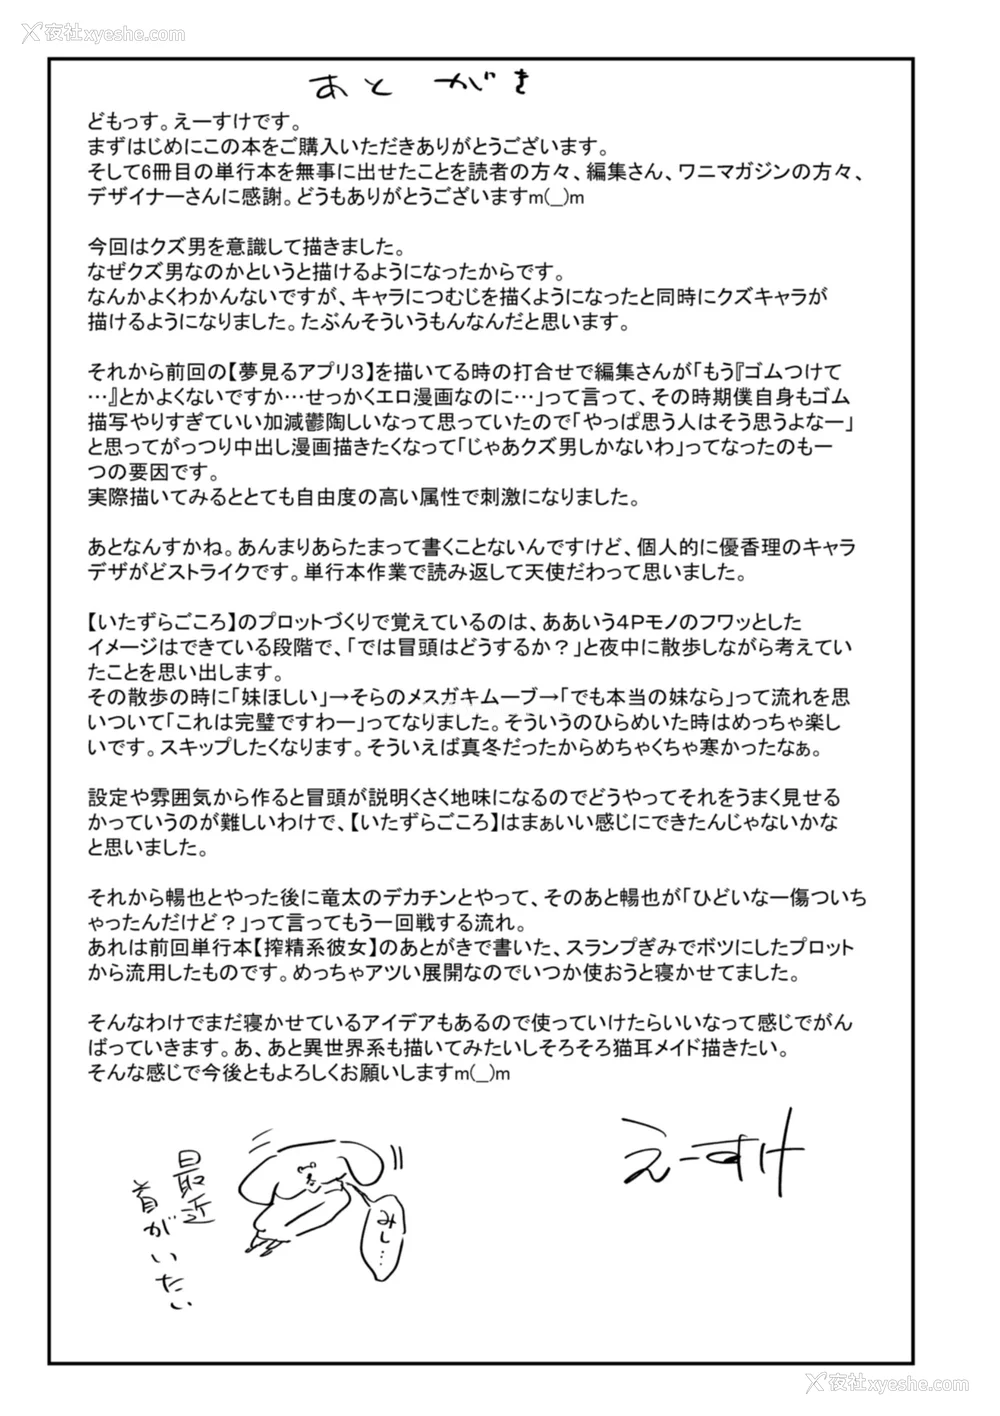 夜社xyeshe.com
あとがき
どもっす。えーすけです。
まずはじめにこの本をご購入いただきありがとうございます。
そして6冊目の単行本を無事に出せたことを読者の方々、編集さん、ワニマガジンの方々、
デザイナーさんに感謝。どうもありがとうございますm(__)m
今回はクズ男を意識して描きました。
なぜクズ男なのかというと描けるようになったからです。
なんかよくわかんないですが、キャラにつむじを描くようになったと同時にクズキャラが
描けるようになりました。たぶんそういうもんなんだと思います。
それから前回の【夢見るアプリ３】を描いてる時の打合せで編集さんが「もう『ゴムつけて
…』とかよくないですか…せっかくエロ漫画なのに…」って言って、その時期僕自身もゴム
描写やりすぎていい加減鬱陶しいなって思っていたので「やっぱ思う人はそう思うよなー」
と思ってがっつり中出し漫画描きたくなって「じゃあクズ男しかないわ」ってなったのも一
つの要因です。
実際描いてみるととても自由度の高い属性で刺激になりました。
あとなんすかね。あんまりあらたまって書くことないんですけど、個人的に優香理のキャラ
デザがどストライクです。単行本作業で読み返して天使だわって思いました。
【いたずらごころ】のプロットづくりで覚えているのは、ああいう４Ｐモノのフワッとした
イメージはできている段階で、「では冒頭はどうするか？」と夜中に散歩しながら考えてい
たことを思い出します。
その散歩の時に「妹ほしい」→そらのメスガキムーブ→「でも本当の妹なら」って流れを思
いついて「これは完璧ですわー」ってなりました。そういうのひらめいた時はめっちゃ楽し
いです。スキップしたくなります。そういえば真冬だったからめちゃくちゃ寒かったなぁ。
設定や雰囲気から作ると冒頭が説明くさく地味になるのでどうやってそれをうまく見せる
かっていうのが難しいわけで、【いたずらごころ】はまぁいい感じにできたんじゃないかな
と思いました。
それから暢也とやった後に竜太のデカチンとやって、そのあと暢也が「ひどいなー傷ついち
ゃったんだけど？」って言ってもう一回戦する流れ。
あれは前回単行本【搾精系彼女】のあとがきで書いた、スランプぎみでボツにしたプロット
から流用したものです。めっちゃアツい展開なのでいつか使おうと寝かせてました。
そんなわけでまだ寝かせているアイデアもあるので使っていけたらいいなって感じでがん
ばっていきます。あ、あと異世界系も描いてみたいしそろそろ猫耳メイド描きたい。
そんな感じで今後ともよろしくお願いしますm(__)m
えーすけ
最近
首がいたい
みし…
夜社xyeshe.com